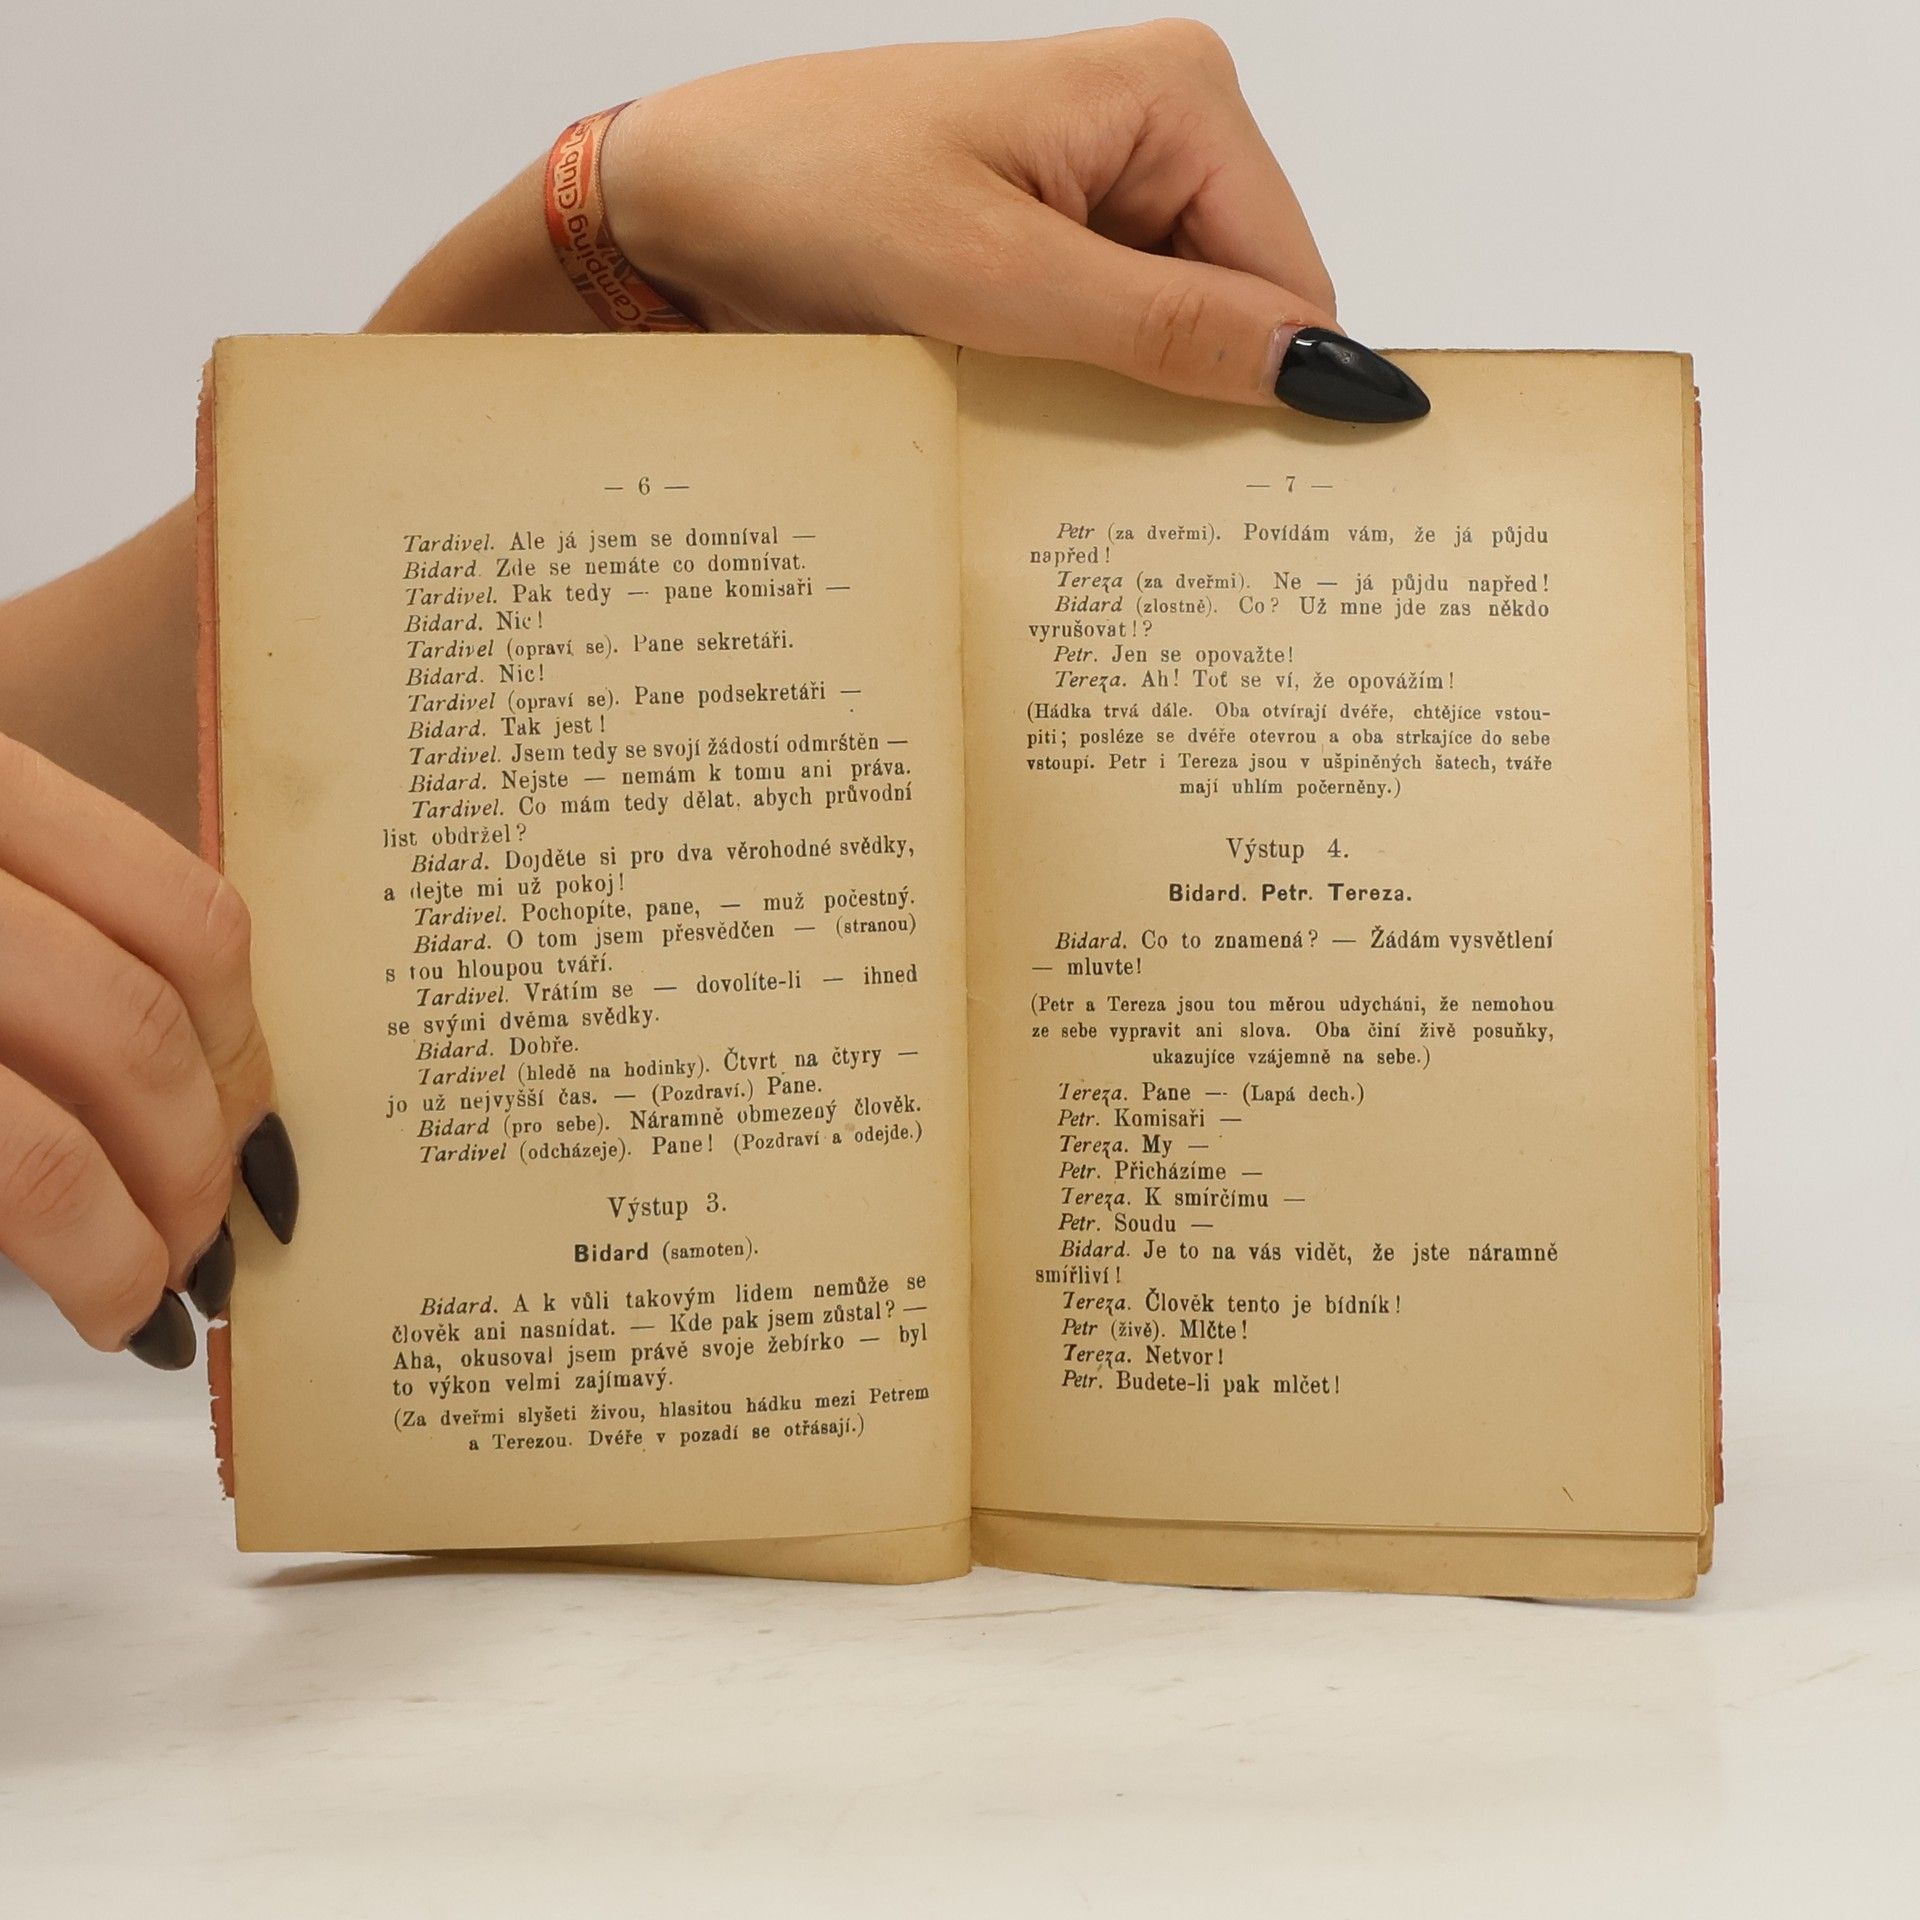 Camping Club
— 6 —
Tardivel. Ale já jsem se domníval —
Bidard. Zde se nemáte co domnívat.
Tardivel. Pak tedy — pane komisaři —
Bidard. Nic!
Tardivel (opraví se). Pane sekretáři.
Bidard. Nic!
Tardivel (opraví se). Pane podsekretáři —
Bidard. Tak jest!
Tardivel. Jsem tedy se svojí žádostí odmrštěn —
Bidard. Nejste — nemám k tomu ani práva.
Tardivel. Co mám tedy dělat, abych průvodní
list obdržel?
Bidard. Dojděte si pro dva věrohodné svědky,
a dejte mi už pokoj!
Tardivel. Pochopíte, pane, — muž počestný.
Bidard. O tom jsem přesvědčen — (stranou)
s tou hloupou tváří.
Tardivel. Vrátím se — dovolíte-li — ihned
se svými dvěma svědky.
Bidard. Dobře.
Tardivel (hledě na hodinky). Čtvrt na čtyry —
jo už nejvyšší čas. — (Pozdraví.) Pane.
Bidard (pro sebe). Náramně obmezený člověk.
Tardivel (odcházeje). Pane! (Pozdraví a odejde.)
Výstup 3.
Bidard (samoten).
Bidard. A k vůli takovým lidem nemůže se
člověk ani nasnídat. — Kde pak jsem zůstal? —
Aha, okusoval jsem právě svoje žebírko — byl
to výkon velmi zajímavý.
(Za dveřmi slyšeti živou, hlasitou hádku mezi Petrem
a Terezou. Dvéře v pozadí se otřásají.)
— 7 —
Petr (za dveřmi). Povídám vám, že já půjdu
napřed!
Tereza (za dveřmi). Ne — já půjdu napřed!
Bidard (zlostně). Co? Už mne jde zas někdo
vyrušovat!?
Petr. Jen se opovažte!
Tereza. Ah! Toť se ví, že opovážím!
(Hádka trvá dále. Oba otvírají dvéře, chtějíce vstou-
piti; posléze se dvéře otevrou a oba strkajíce do sebe
vstoupí. Petr i Tereza jsou v ušpiněných šatech, tváře
mají uhlím počerněny.)
Výstup 4.
Bidard. Petr. Tereza.
Bidard. Co to znamená? — Žádám vysvětlení
— mluvte!
(Petr a Tereza jsou tou měrou udycháni, že nemohou
ze sebe vypravit ani slova. Oba činí živě posuňky,
ukazujíce vzájemně na sebe.)
Tereza. Pane — (Lapá dech.)
Petr. Komisaři —
Tereza. My —
Petr. Přicházíme —
Tereza. K smírčímu —
Petr. Soudu —
Bidard. Je to na vás vidět, že jste náramně
smířliví!
Tereza. Člověk tento je bídník!
Petr (živě). Mlčte!
Tereza. Netvor!
Petr. Budete-li pak mlčet!